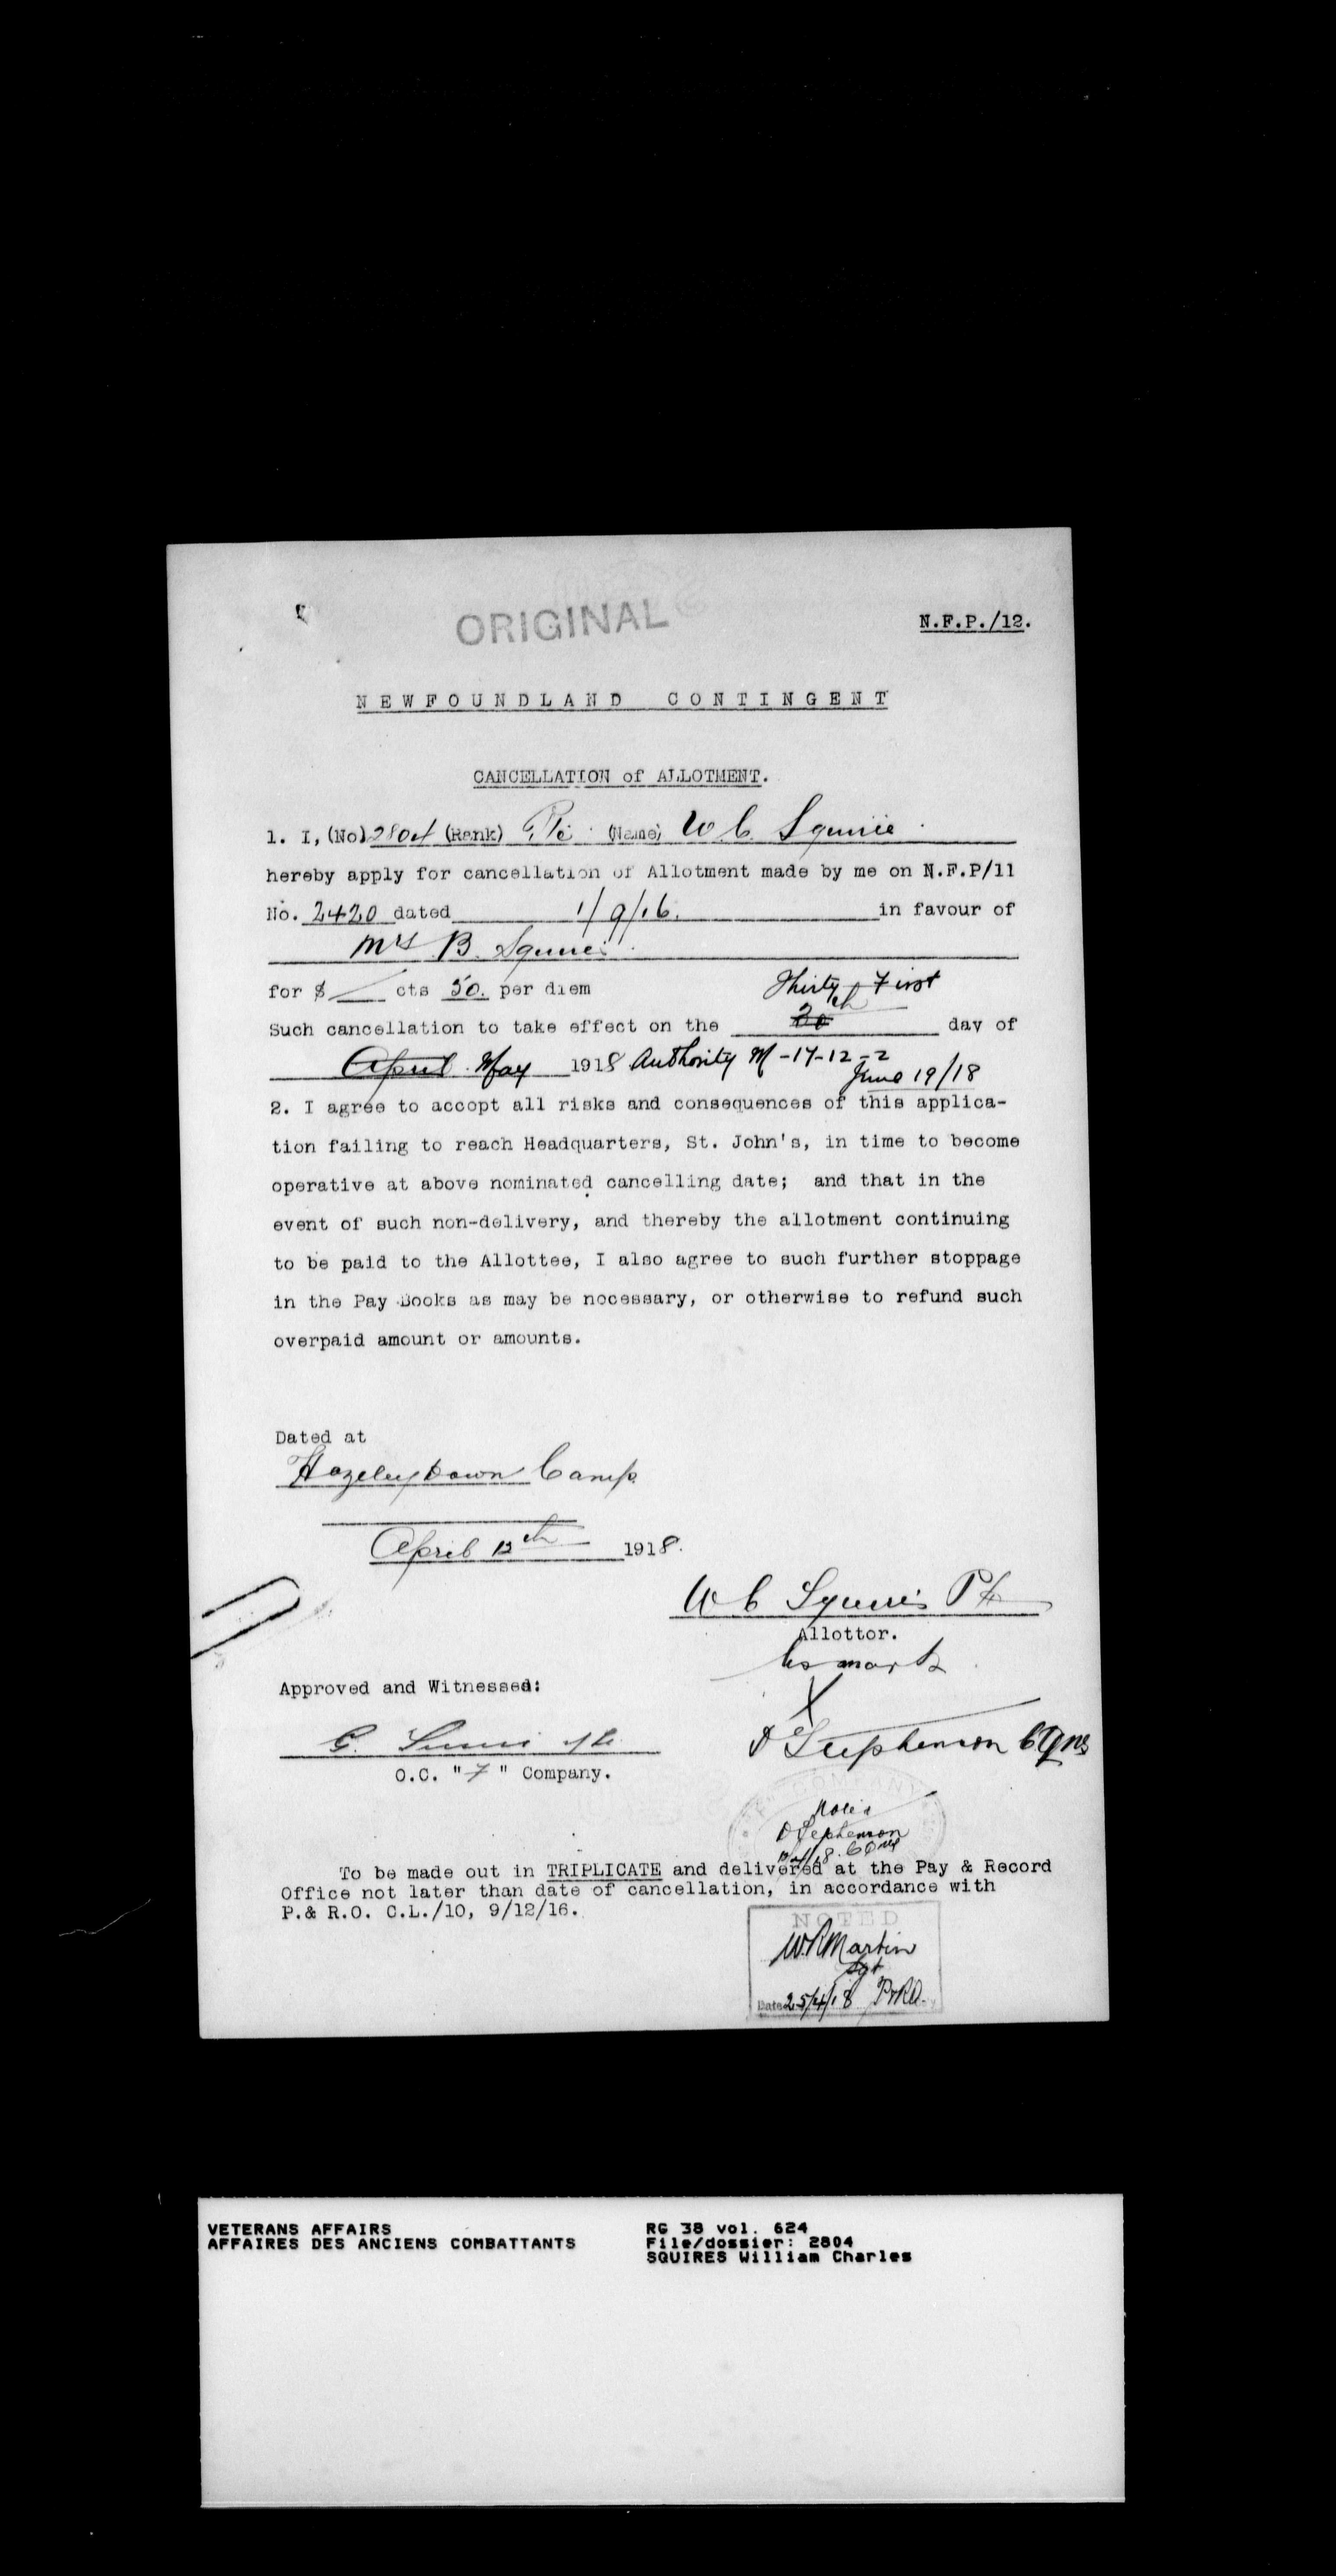 ORIGINAL
N.F.P./12.
NEWFOUNDLAND CONTINGENT
CANCELLATION of ALLOTMENT.
1. I, (No) 2804 (Rank) Pte (Name) W. C. Squires
hereby apply for cancellation of Allotment made by me on N.F.P/11
No. 2420 dated 1/9/16. in favour of
Mrs B. Squires
for $ cts 50. per diem
Thirty First
Such cancellation to take effect on the 30th day of
April May 1918 Authority M-17-12-2
June 19/18
2. I agree to accept all risks and consequences of this applica-
tion failing to reach Headquarters, St. John's, in time to become
operative at above nominated cancelling date; and that in the
event of such non-delivery, and thereby the allotment continuing
to be paid to the Allottee, I also agree to such further stoppage
in the Pay Books as may be necessary, or otherwise to refund such
overpaid amount or amounts.
Dated at
Hazeley Down Camp
April 12th 1918.
W C Squires Pte
Allottor.
his mark
X
Approved and Witnessed:
G.
D Stephenson CQMS
O.C. "F" Company.
COMPANY
Noted
D Stephenson
CQMS
To be made out in TRIPLICATE and delivered at the Pay & Record
Office not later than date of cancellation, in accordance with
P.& R.O. C.L./10, 9/12/16.
NOTED
W.R. Martin
Sgt
Date 25/4/18 P&RO.
VETERANS AFFAIRS
AFFAIRES DES ANCIENS COMBATTANTS
RG 38 vol. 624
File/dossier: 2804
SQUIRES William Charles